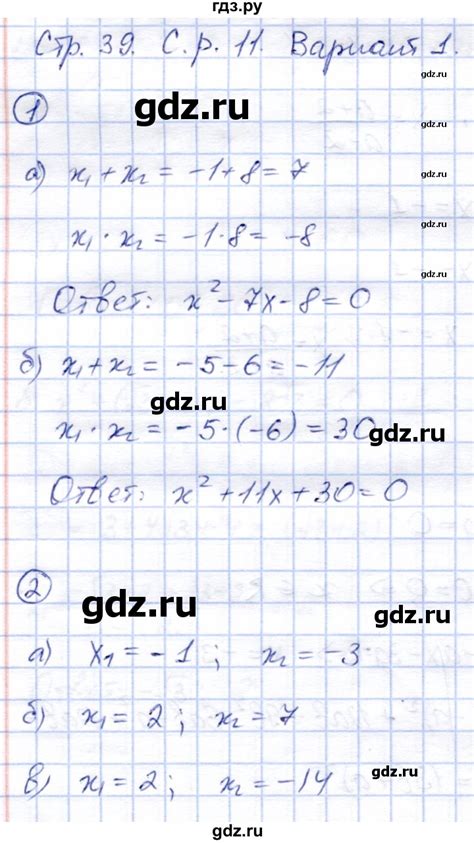 гдз.ру
Стр. 39. С. р. 11. Вариант 1.
1
gdz.ru
а) x₁ + x₂ = -1 + 8 = 7
x₁ · x₂ = -1 · 8 = -8
Ответ: x² - 7x - 8 = 0
б) x₁ + x₂ = -5 - 6 = -11
gdz.ru
x₁ · x₂ = -5 · (-6) = 30
gdz.ru
Ответ: x² + 11x + 30 = 0
2
gdz.ru
gdz.ru
а) x₁ = -1 ; x₂ = -3
б) x₁ = 2 ; x₂ = 7
gdz.ru
в) x₁ = 2 ; x₂ = -14
gdz.ru